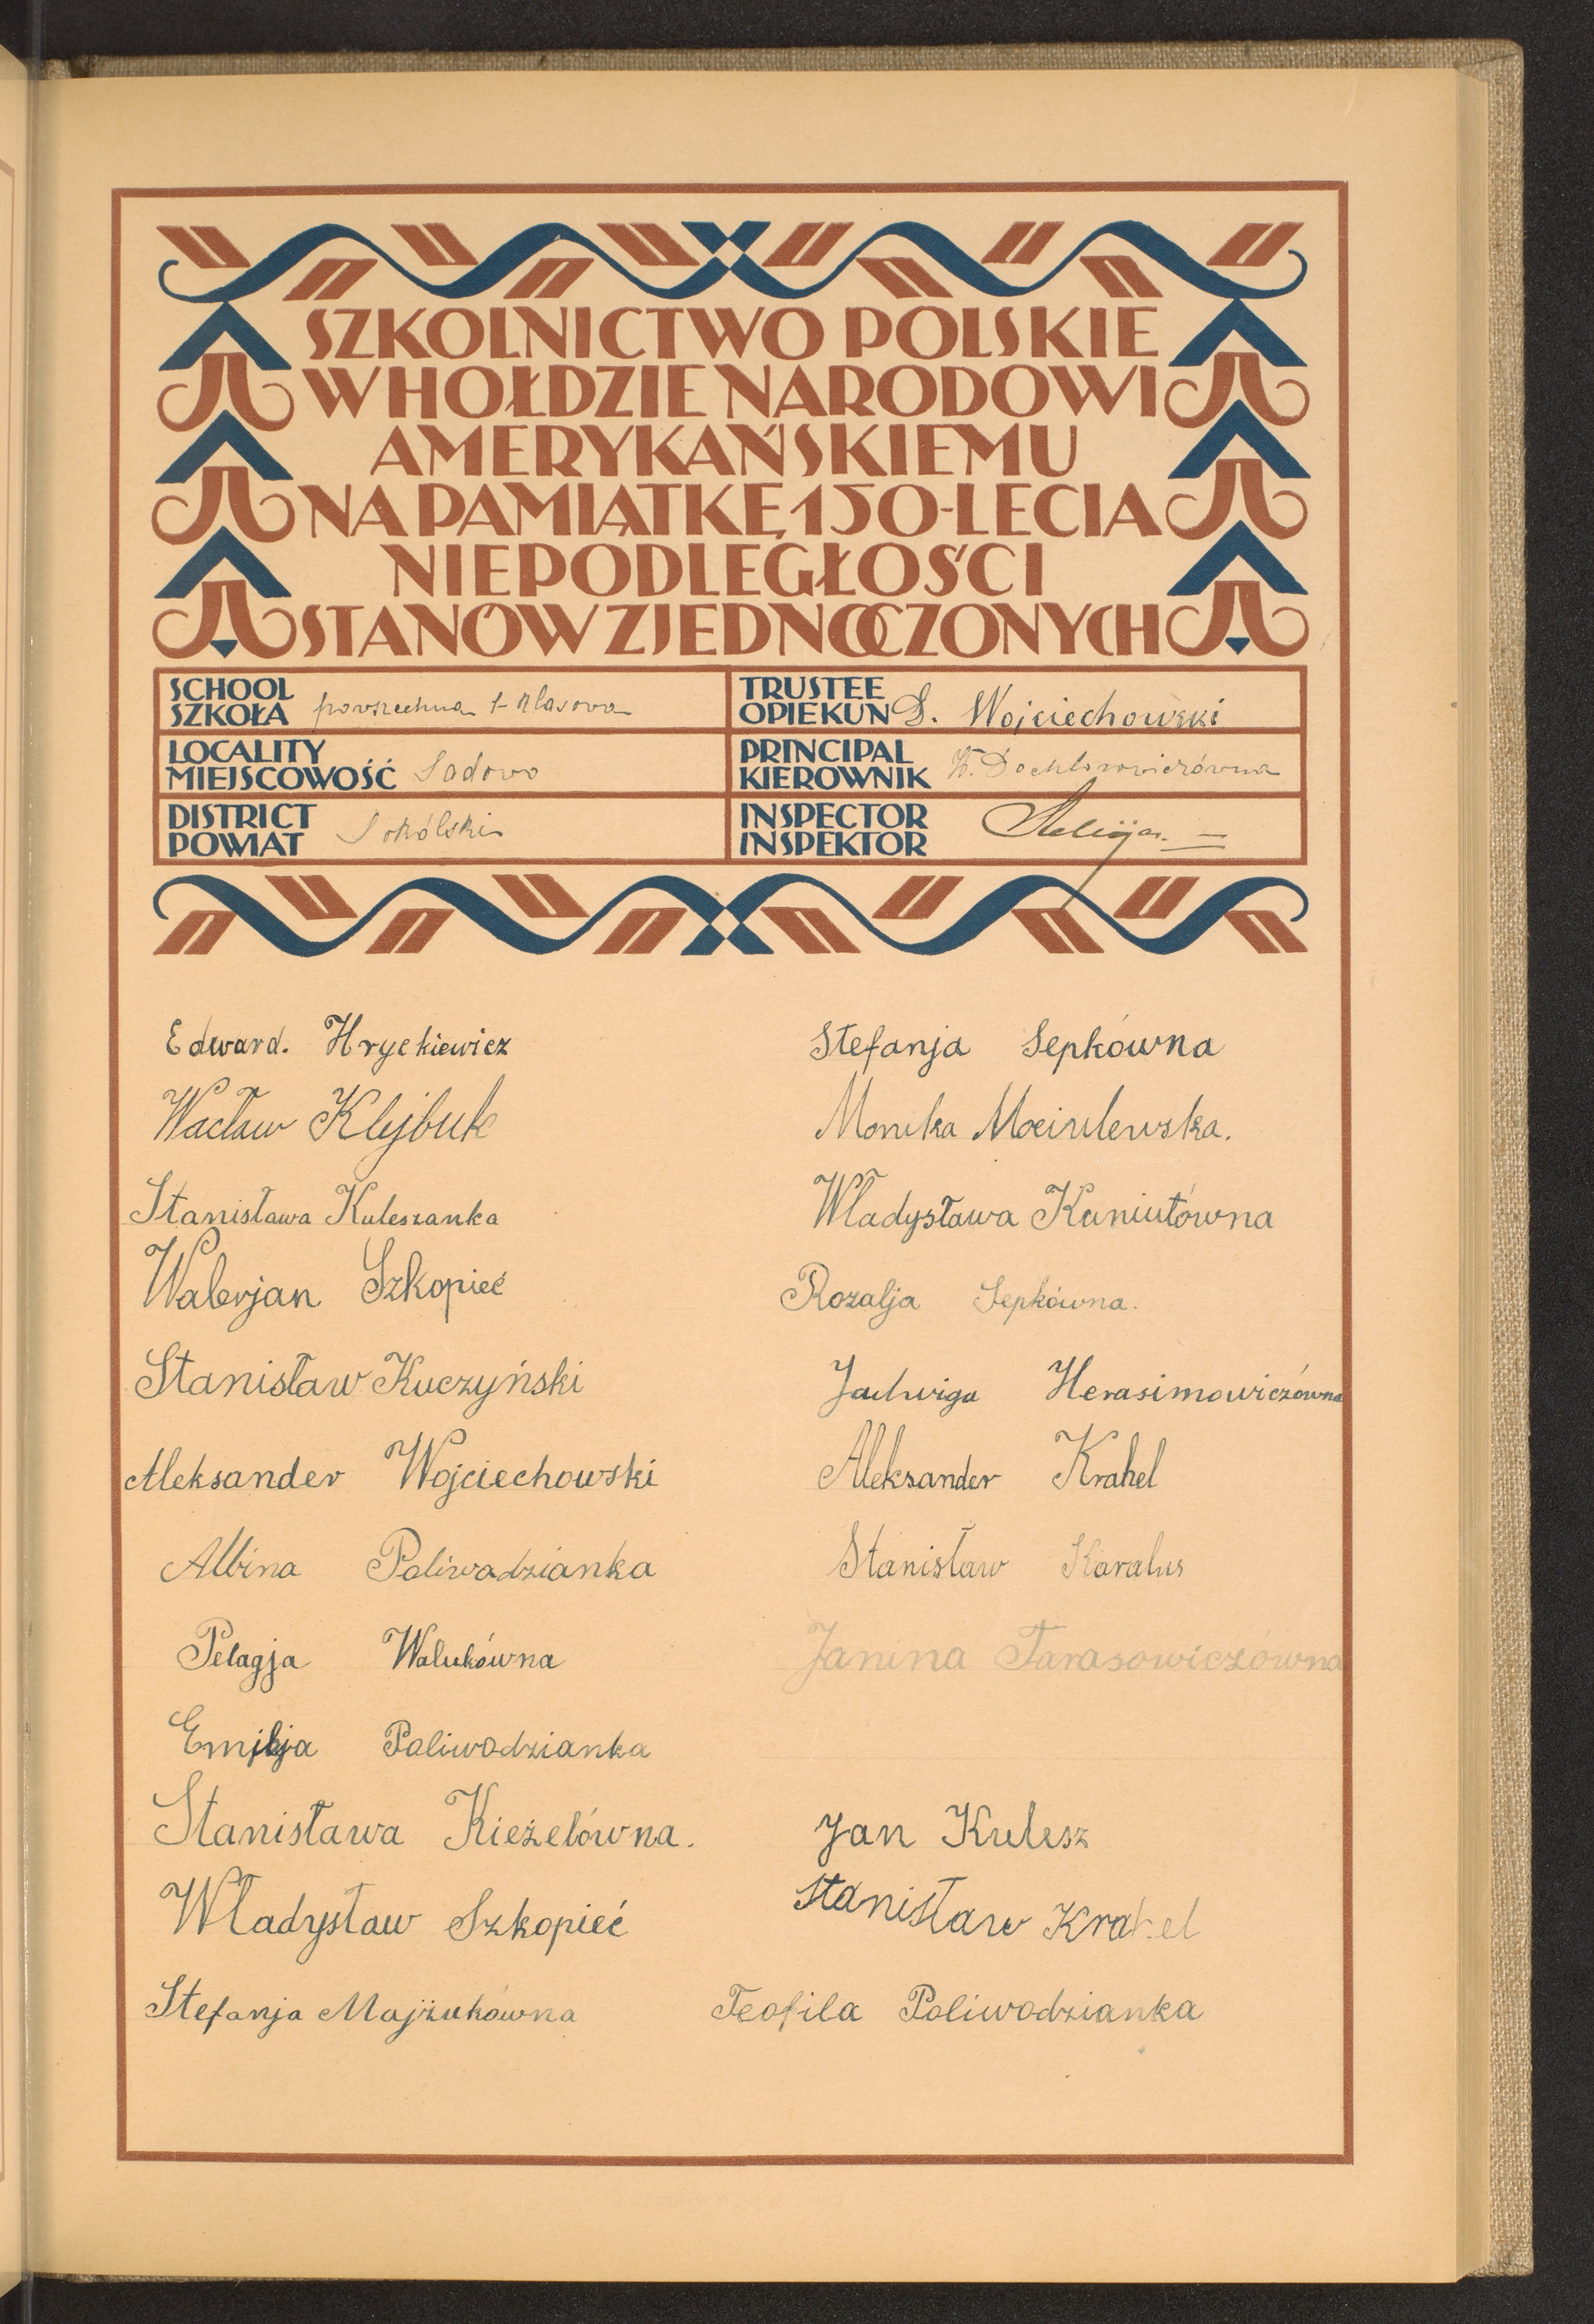 SZKOLNICTWO POLSKIE
W HOŁDZIE NARODOWI
AMERYKAŃSKIEMU
NA PAMIĄTKĘ 150-LECIA
NIEPODLEGŁOŚCI
STANÓW ZJEDNOCZONYCH
SCHOOL
SZKOŁA powszechna 1-klasowa
LOCALITY
MIEJSCOWOŚĆ Sadowo
DISTRICT
POWIAT Sokólski
TRUSTEE
OPIEKUN S. Wojciechowski
PRINCIPAL
KIEROWNIK
INSPECTOR
INSPEKTOR
Edward. Hryckiewicz
Wacław Klejbuk
Stanisława Kuleszanka
Walerjan Szkopieć
Stanisław Kuczyński
Aleksander Wojciechowski
Albina Poliwodzianka
Pelagja Walukówna
Emilja Poliwodzianka
Stanisława Kieżelówna.
Władysław Szkopieć
Stefanja Majżukówna
Stefanja Sepkówna
Monika Mociulewska.
Władysława Kaniutówna
Rozalja Sepkówna.
Jadwiga Herasimowiczówna
Aleksander Krahel
Stanisław Karalus
Janina Tarasowiczówna
Jan Kulesz
Stanisław Krahel
Teofila Poliwodzianka